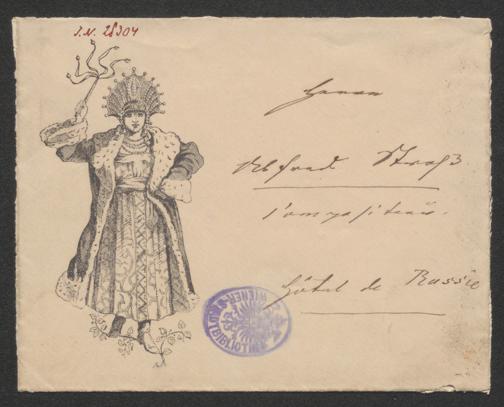 J.N. 28304
Herrn
Alfred Strauß
Compositeur.
Hôtel de Russie
WIENER STADTBIBLIOTHEK